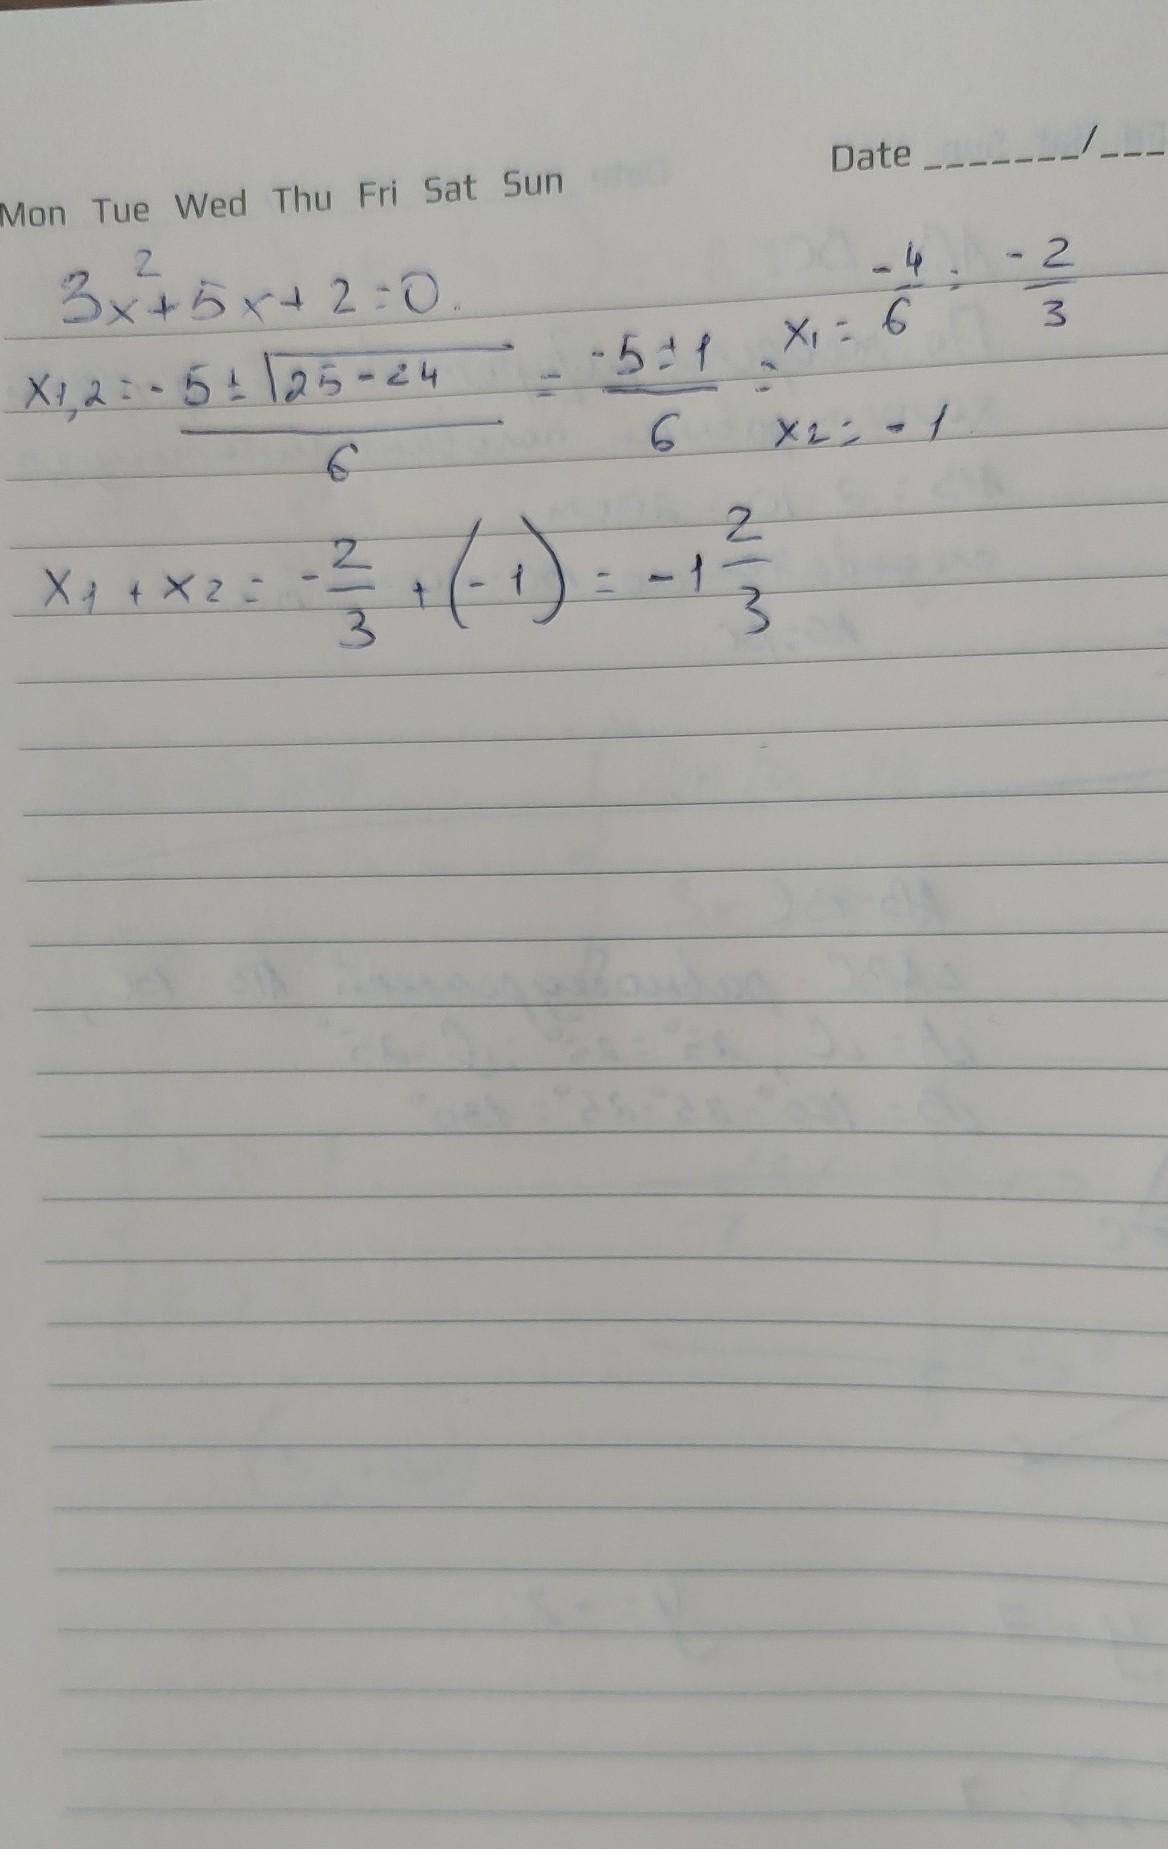 Date _______/___
Mon Tue Wed Thu Fri Sat Sun
3x²+5x+2=0.
x1,2 = -5±√25-24 / 6 = -5±1 / 6 = x1 = -4/6 = -2/3
x2 = -1
x1 + x2 = -2/3 + (-1) = -1 2/3